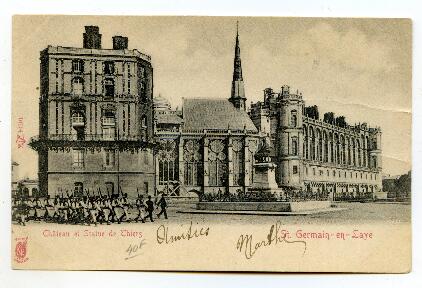 Château et Statue de Thiers
St. Germain-en-Laye
40F
Amitiés
Marthe